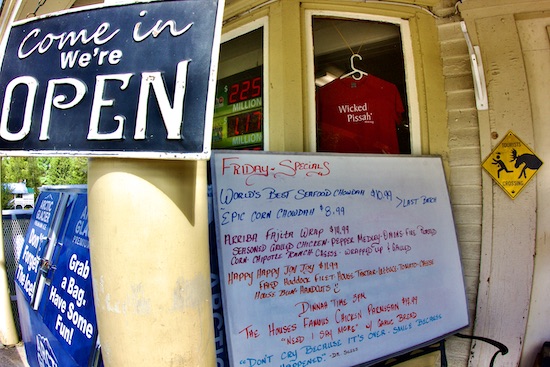 Come in
We're
OPEN
$ 225
MILLION
117
MILLION
Wicked
Pissah
ARCTIC
GLACIER
Don't
Forget
The Ice!
Grab
a Bag.
Have Some
Fun!
FRIDAY-SPECIALS
WORLD'S BEST SEAFOOD CHOWDAH $10.99
EPIC CORN CHOWDAH $8.99
>LAST BATCH
ARRIBA FAJITA WRAP $11.99
SEASONED GRILLED CHICKEN-PEPPER MEDLEY-ONIONS-FIRE ROASTED
CORN-CHIPOTLE RANCH CHEESE-WRAPPED UP & GRILLED
HAPPY HAPPY JOY JOY $11.99
FRIED HADDOCK FILET HOUSE TARTAR-LETTUCE-TOMATO-CHEESE
HOUSE
DINNAH TIME 5PM
THE HOUSES FAMOUS CHICKEN PARMESAN
"NEED I SAY MORE" W/ GARLIC BREAD
"DON'T CRY BECAUSE IT'S OVER-SMILE BECAUSE
HAPPENED" -DR. SEUSS
TOURISTS
CROSSING